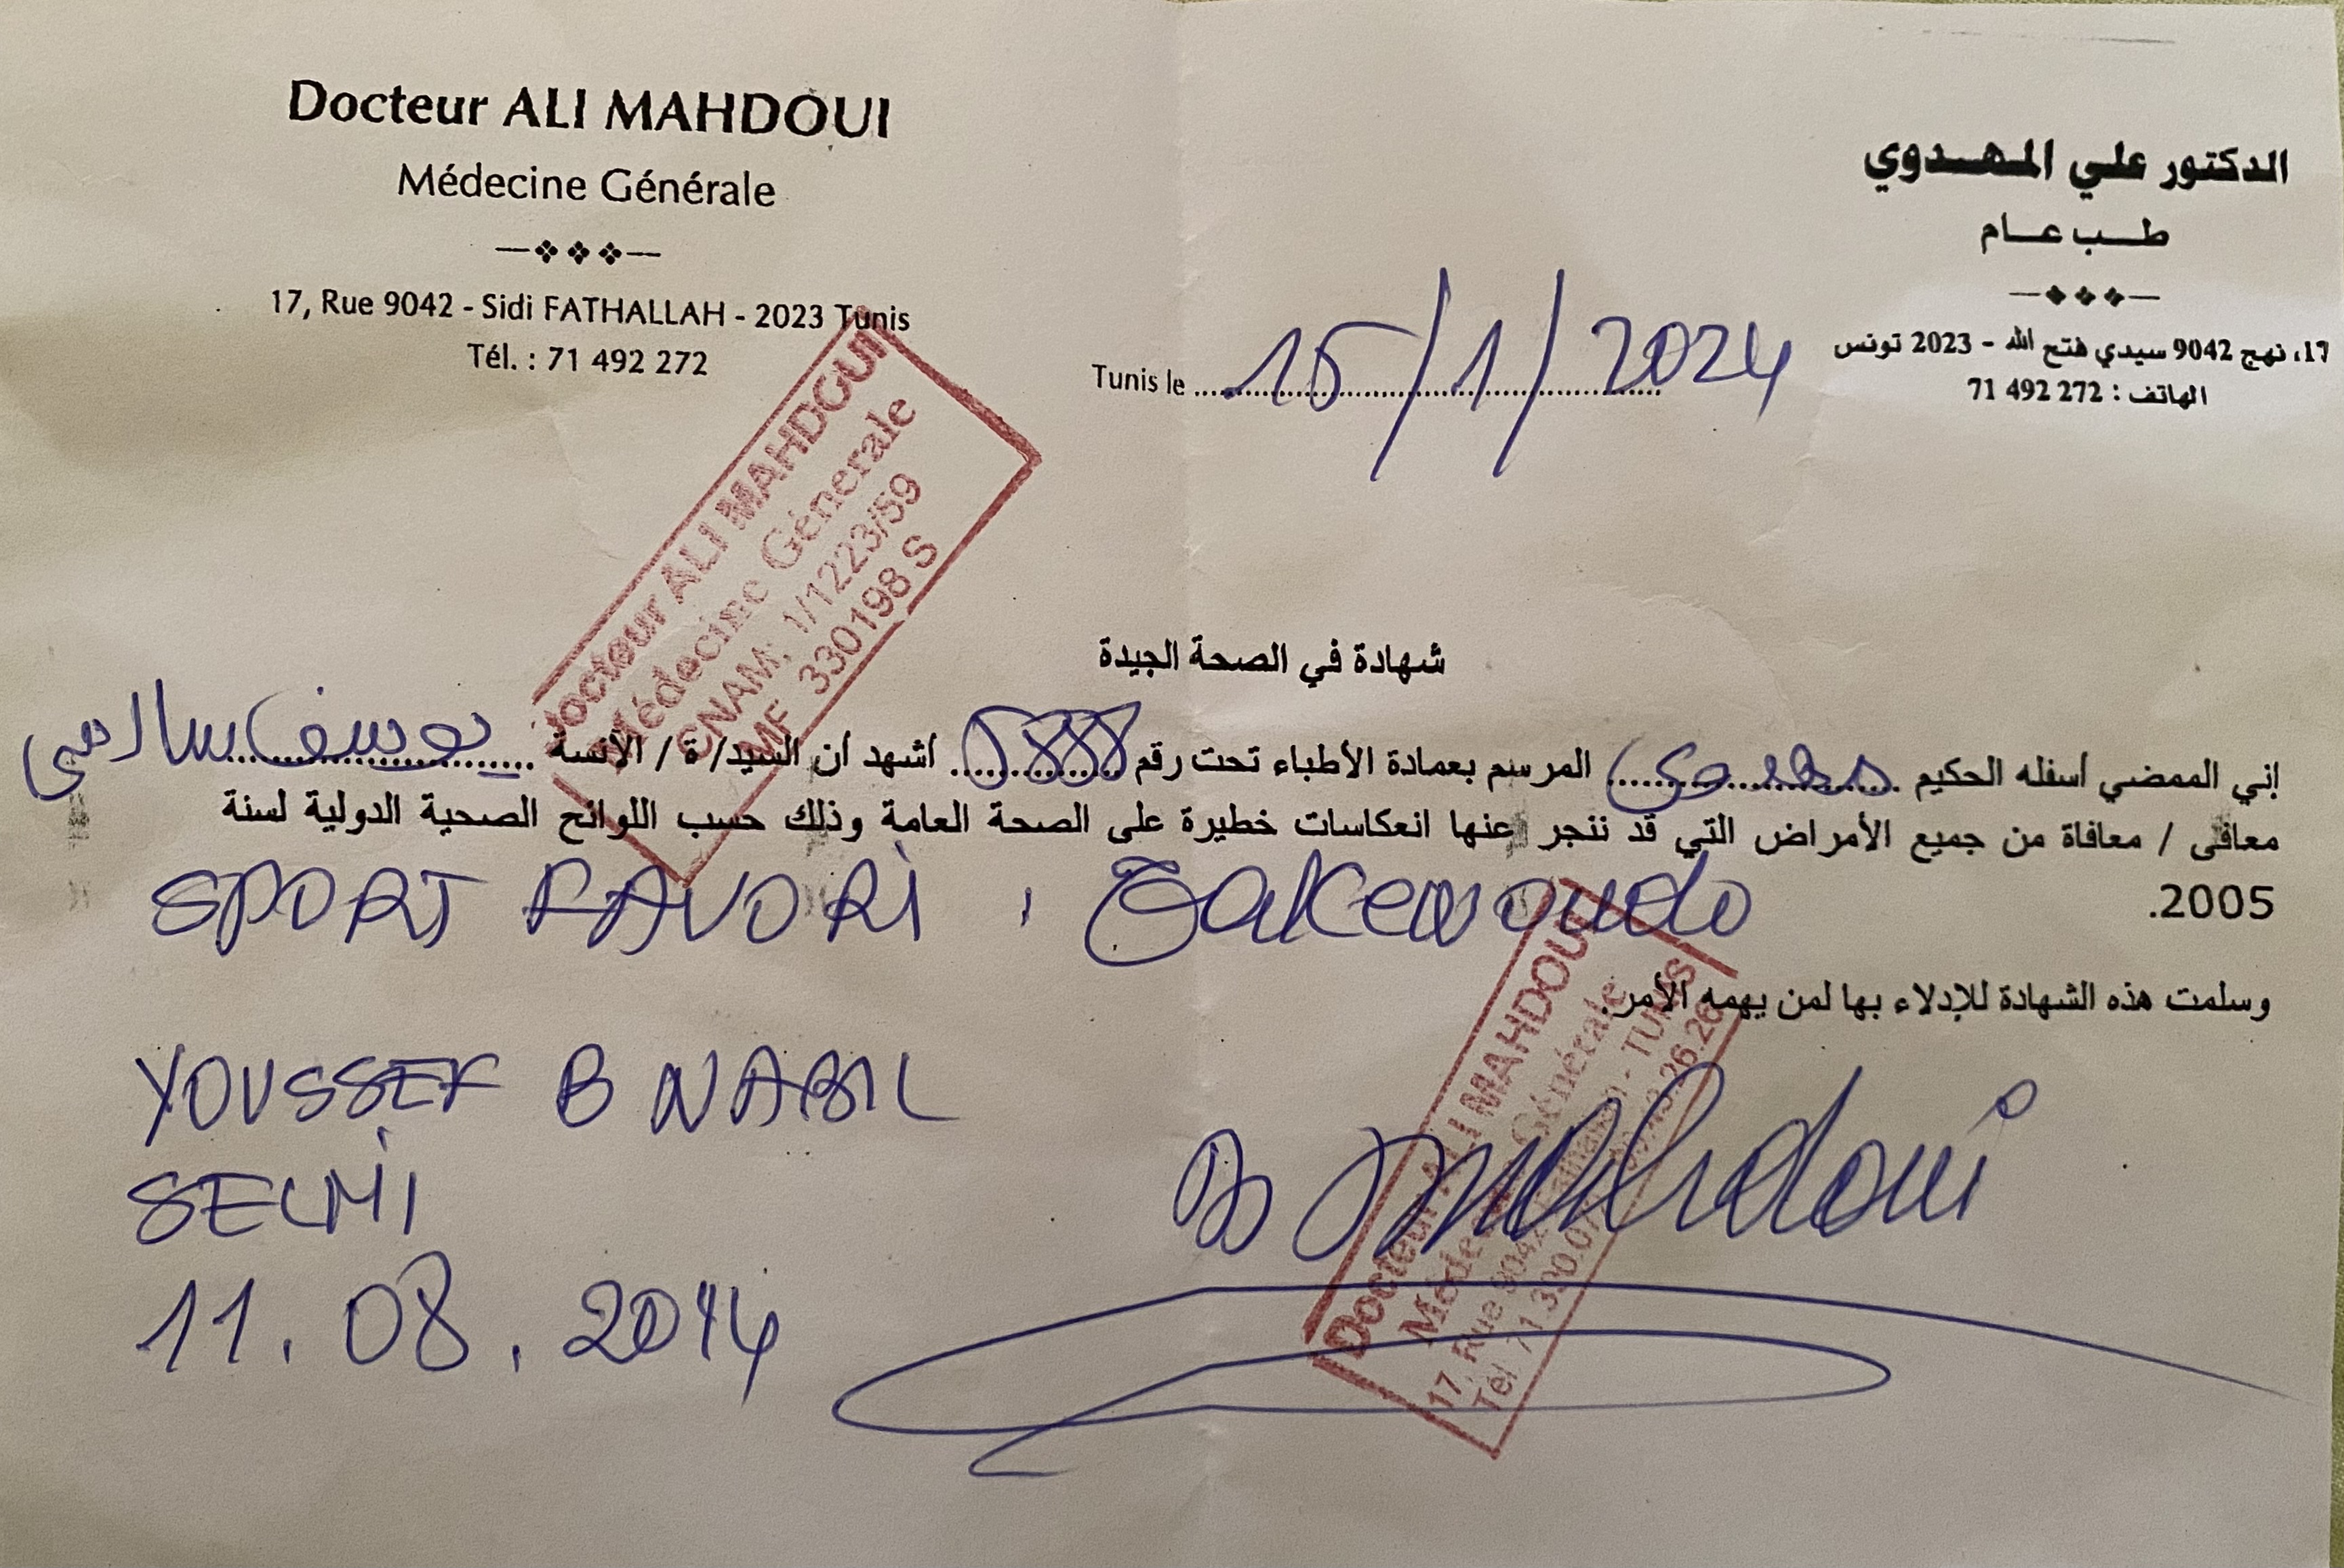 Docteur ALI MAHDOUI
Médecine Générale
17, Rue 9042 - Sidi FATHALLAH - 2023 Tunis
Tél. : 71 492 272
الدكتور علي المهدوي
طب عام
17، نهج 9042 سيدي فتح الله - 2023 تونس
الهاتف : 272 492 71
Tunis le 15/1/2024
Docteur ALI MAHDOUI
Médecine Générale
CNAM: 1/1223/59
MF 330198 S
شهادة في الصحة الجيدة
إني الممضي أسفله الحكيم المرسم بعمادة الأطباء تحت رقم أشهد أن السيد/ ة / الآنسة يوسف سالمي
معافى / معافاة من جميع الأمراض التي قد ننجر عنها انعكاسات خطيرة على الصحة العامة وذلك حسب اللوائح الصحية الدولية لسنة
2005.
SPORT FAVORI : Taekwondo
وسلمت هذه الشهادة للإدلاء بها لمن يهمه الأمر.
YOUSSEF B NABIL
SELMI
11.08.2014
Dr Mahdoui
Docteur ALI MAHDOUI
Médecine Générale
17, Rue 9042 - TUNIS
Tél